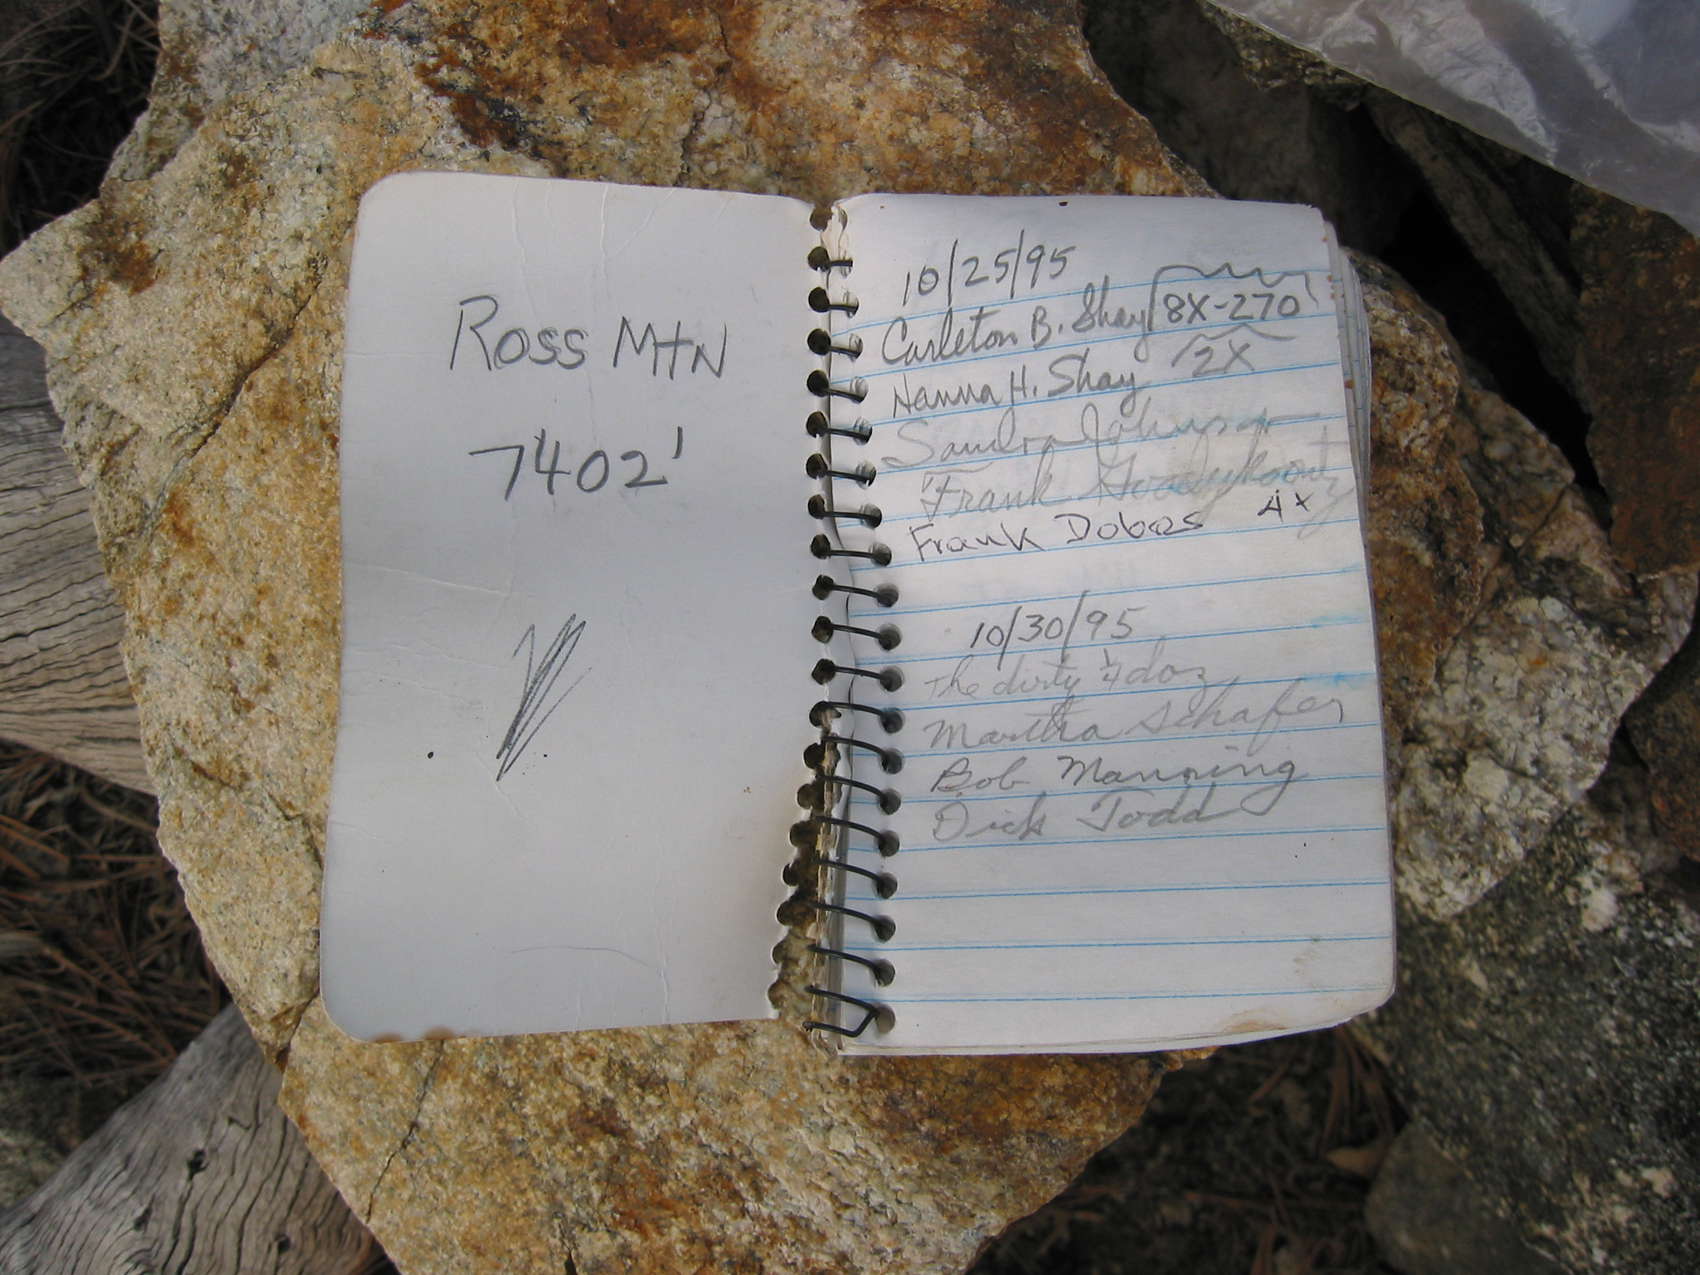 Ross Mtn
7402'
10/25/95
Carleton B. Shay 8X-270
Hanna H. Shay 2X
Sandra Johnson
Frank Goodykoontz
Frank Dobos 4x
10/30/95
The dirty 1/4 doz
Martha Schafer
Bob Manning
Dick Todd